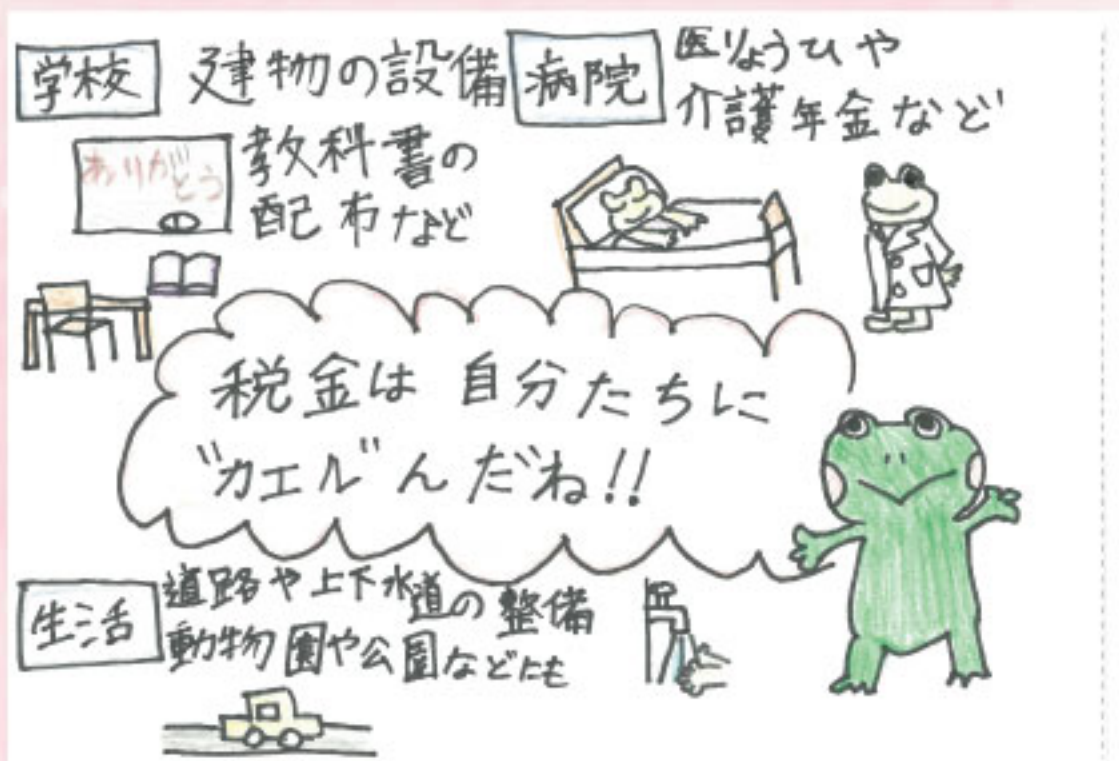 学校
建物の設備
教科書の
配布など
ありが
とう
病院
医りょうひや
介護年金など
税金は 自分たちに
"カエル"んだね!!
生活
道路や上下水道の整備
動物園や公園などにも